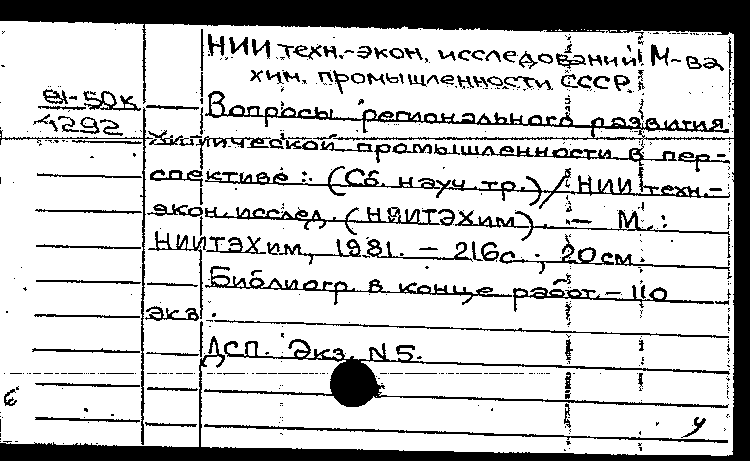 НИИ техн.-экон. исследований М-ва
хим. промышленности СССР.
81-50к
4292
Вопросы регионального развития
химической промышленности в пер-
спективе : (Сб. науч. тр.) / НИИ техн.-
экон. исслед. (НИИТЭХим). - М.:
НИИТЭХим, 1981. - 216с. ; 20см.
Библиогр. в конце работ. - 110
экз.
ДСП. Экз. N 5.